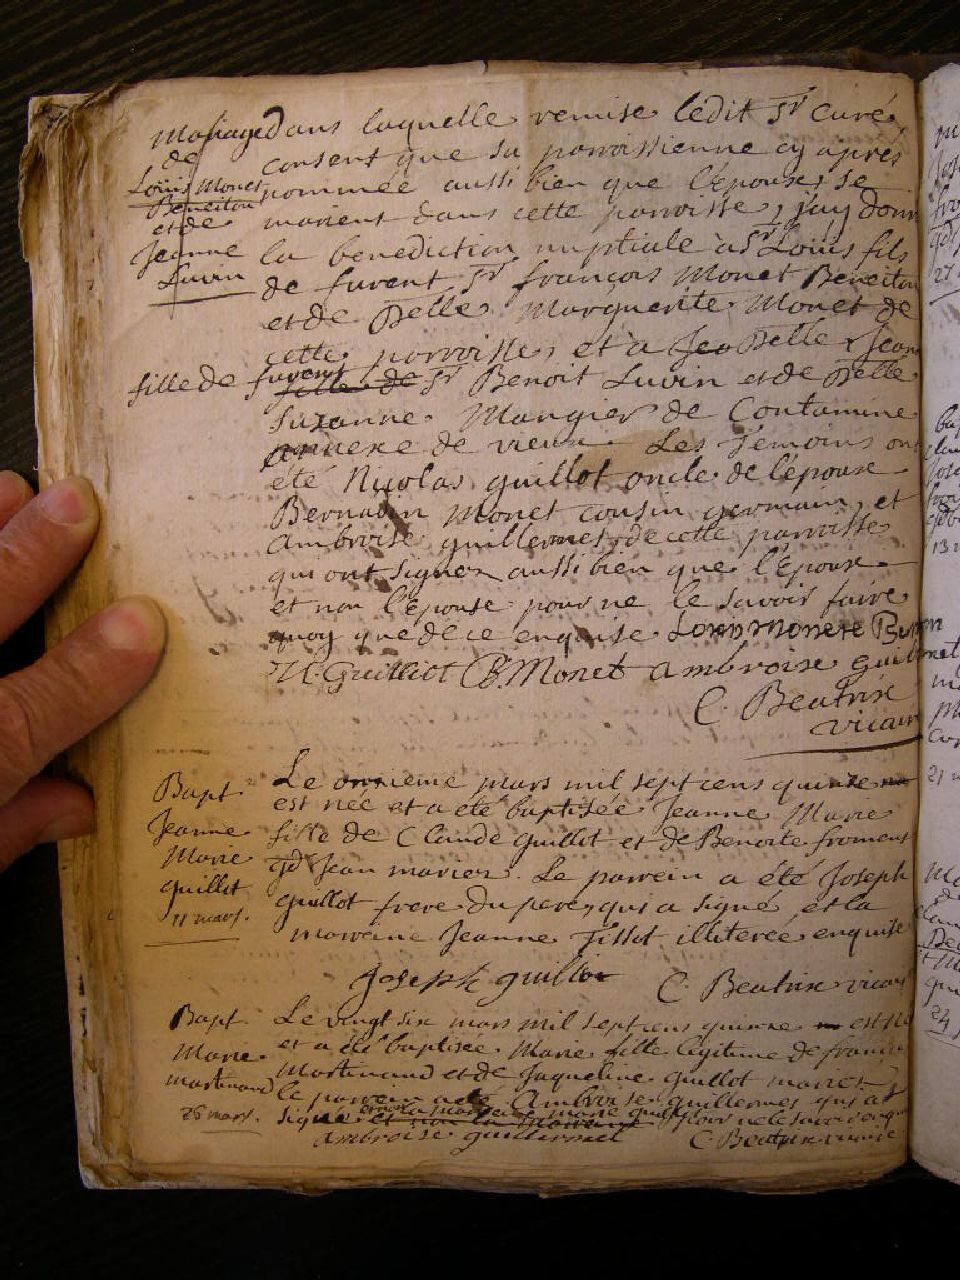 Mariage
de
Louis Monet
Beneiton
et de
Jeanne
Luvin
Dans laquelle remise ledit Sr Curé
consent que sa parroissienne cy après
nommée aussi bien que l'epoux, se
marient dans cette parroisse, j'ay donné
la benediction nuptiale à Sr Louis fils
de furent Sr françois Monet Beneiton
et de Delle Marguerite Monet de
cette parroisse, et à Delle Jean
fille de furent Sr Benoit Luvin et de Delle
Suzanne Mangier de Contamine
annexe de vieux Les temoins ont
été Nicolas guillot oncle de l'épouse
Bernadin Monet cousin germain, et
Ambroise guillermet de cette parroisse
qui ont signer aussi bien que l'Epoux
et non l'Epouse pour ne le savoir faire
quoy que de ce enquise Louis monete
N. Guilliot B. Monet ambroise guillermet
C. Beatrix
vicaire
Bapt
Jeanne
Marie
guillot
11 mars.
Le onzieme mars mil sept cens quinze
est née et a été baptisée Jeanne Marie
fille de Claude guillot et de Benoite froment
gd Jean mariez. Le parrein a été Joseph
guillot frere du pere, qui a signé, et la
marreine Jeanne Tissot illiterée enquise
Joseph guillot C. Beatrix vicaire
Bapt
Marie
martinand
26 mars.
Le vingt six mars mil sept cens quinze est née
et a été baptisée Marie fille legitime de francois
Martinand et de Jaqueline guillot mariez
le parrein a été Ambroise guillermet qui a
signé et non la marreine marie guillot pour ne le savoir enquise
ambroise guillermet C. Beatrix vicaire